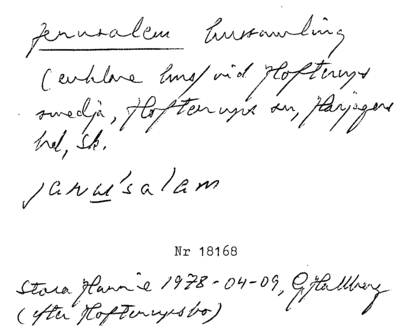 Jerusalem hussamling
(enklare hus) vid Hofterups
svedja, Hofterups sn, Harjagers
hd, Sk.
jaru'salam
Nr 18168
Stora Harrie 1978-04-09, G Hallberg
(efter Hofterupsbo)